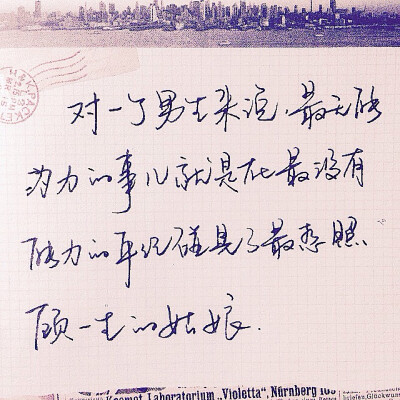 对一个男生来说.最无能
为力的事儿就是在最没有
能力的年纪碰见了最想照
顾一生的姑娘.
Kosmet. Laboratorium „Violetta“, Nürnberg